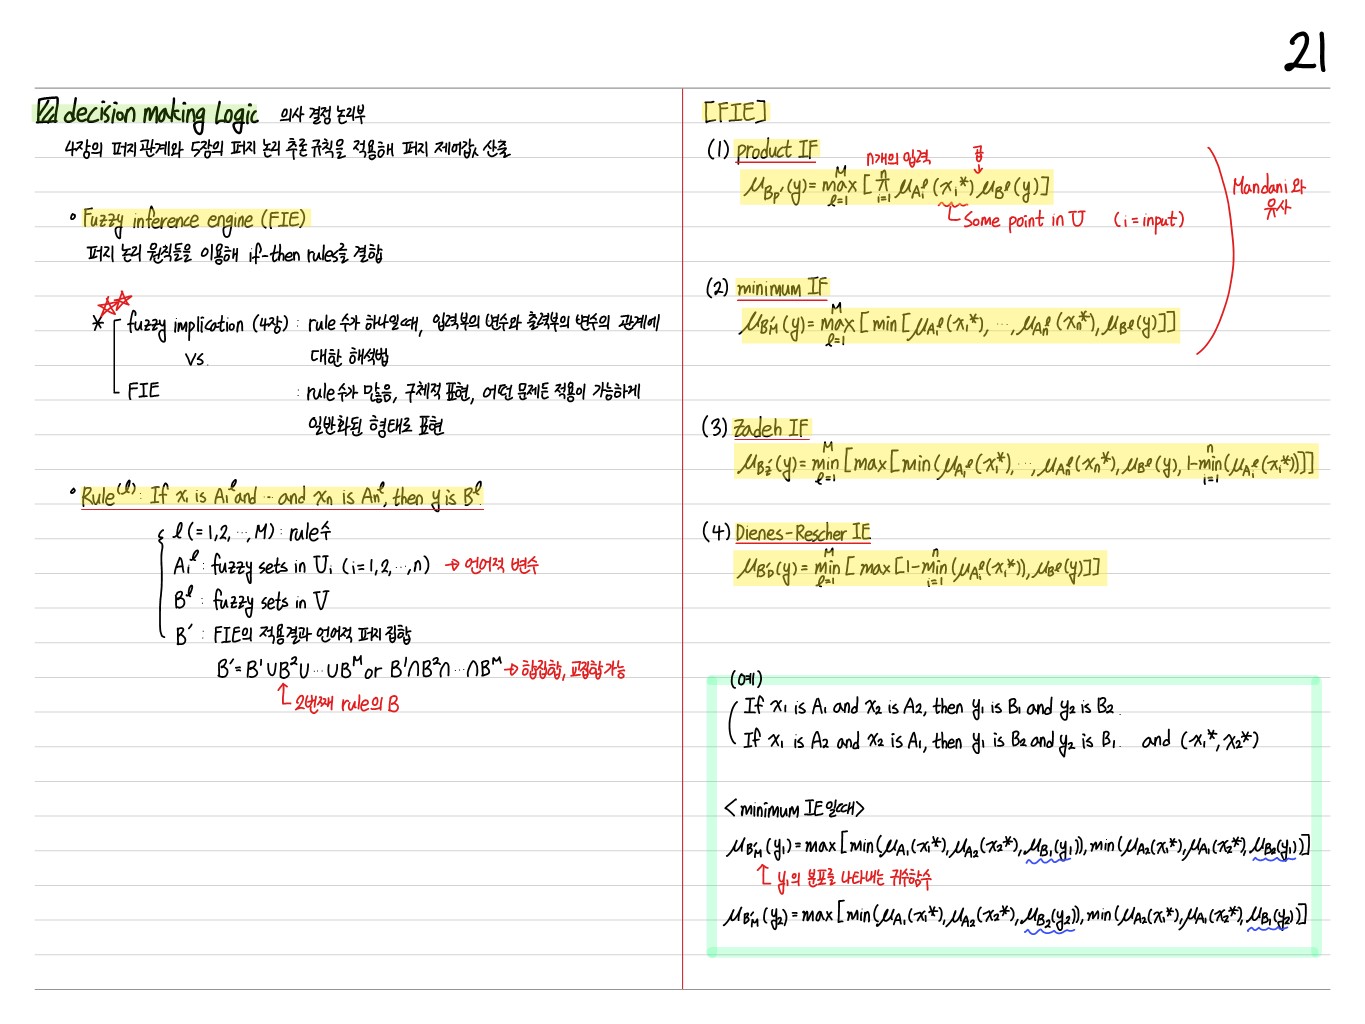 21
decision making Logic 의사 결정 논리부
4장의 퍼지관계와 5장의 퍼지 논리 추론 규칙을 적용해 퍼지 제어값 산출
• Fuzzy inference engine (FIE)
퍼지 논리 원칙들을 이용해 if-then rules를 결합
* fuzzy implication (4장) : rule 수가 하나일때, 입력부의 변수와 출력부의 변수의 관계에
vs. 대한 해석법
FIE : rule수가 많음, 구체적 표현, 어떤 문제든 적용이 가능하게
일반화된 형태로 표현
• Rule⁽ˡ⁾: If x₁ is A₁ˡ and ··· and xₙ is Aₙˡ, then y is Bˡ.
l (=1,2,···,M) : rule수
Aᵢˡ : fuzzy sets in Uᵢ (i=1,2,···,n) → 언어적 변수
Bˡ : fuzzy sets in V
B′ : FIE의 적용결과 언어적 퍼지 집합
B′=B¹∪B²∪···∪Bᴹ or B¹∩B²∩···∩Bᴹ → 합집합, 교집합 가능
2번째 rule의 B
[FIE]
(1) product IF
n개의 입력 곱
μ_{Bp′}(y)= max_{l=1}^{M} [ π_{i=1}^{n} μ_{Aᵢˡ}(xᵢ*) μ_{Bˡ}(y)]
Some point in U (i=input)
Mandani와
유사
(2) minimum IF
μ_{B′M}(y)= max_{l=1}^{M} [min[μ_{A₁ˡ}(x₁*), ···, μ_{Aₙˡ}(xₙ*), μ_{Bˡ}(y)]]
(3) Zadeh IF
μ_{B′z}(y)= min_{l=1}^{M} [max[min(μ_{A₁ˡ}(x₁*), ···, μ_{Aₙˡ}(xₙ*), μ_{Bˡ}(y), 1-min_{i=1}^{n}(μ_{Aᵢˡ}(xᵢ*))]]
(4) Dienes-Rescher IE
μ_{B′D}(y)= min_{l=1}^{M} [max[1-min_{i=1}^{n}(μ_{Aᵢˡ}(xᵢ*)), μ_{Bˡ}(y)]]
(예)
If x₁ is A₁ and x₂ is A₂, then y₁ is B₁ and y₂ is B₂.
If x₁ is A₂ and x₂ is A₁, then y₁ is B₂ and y₂ is B₁. and (x₁*, x₂*)
<minimum IE일때>
μ_{B′M}(y₁)=max[min(μ_{A₁}(x₁*), μ_{A₂}(x₂*), μ_{B₁}(y₁)), min(μ_{A₂}(x₁*), μ_{A₁}(x₂*), μ_{B₂}(y₁))]
y₁의 분포를 나타내는 귀수함수
μ_{B′M}(y₂)=max[min(μ_{A₁}(x₁*), μ_{A₂}(x₂*), μ_{B₂}(y₂)), min(μ_{A₂}(x₁*), μ_{A₁}(x₂*), μ_{B₁}(y₂))]